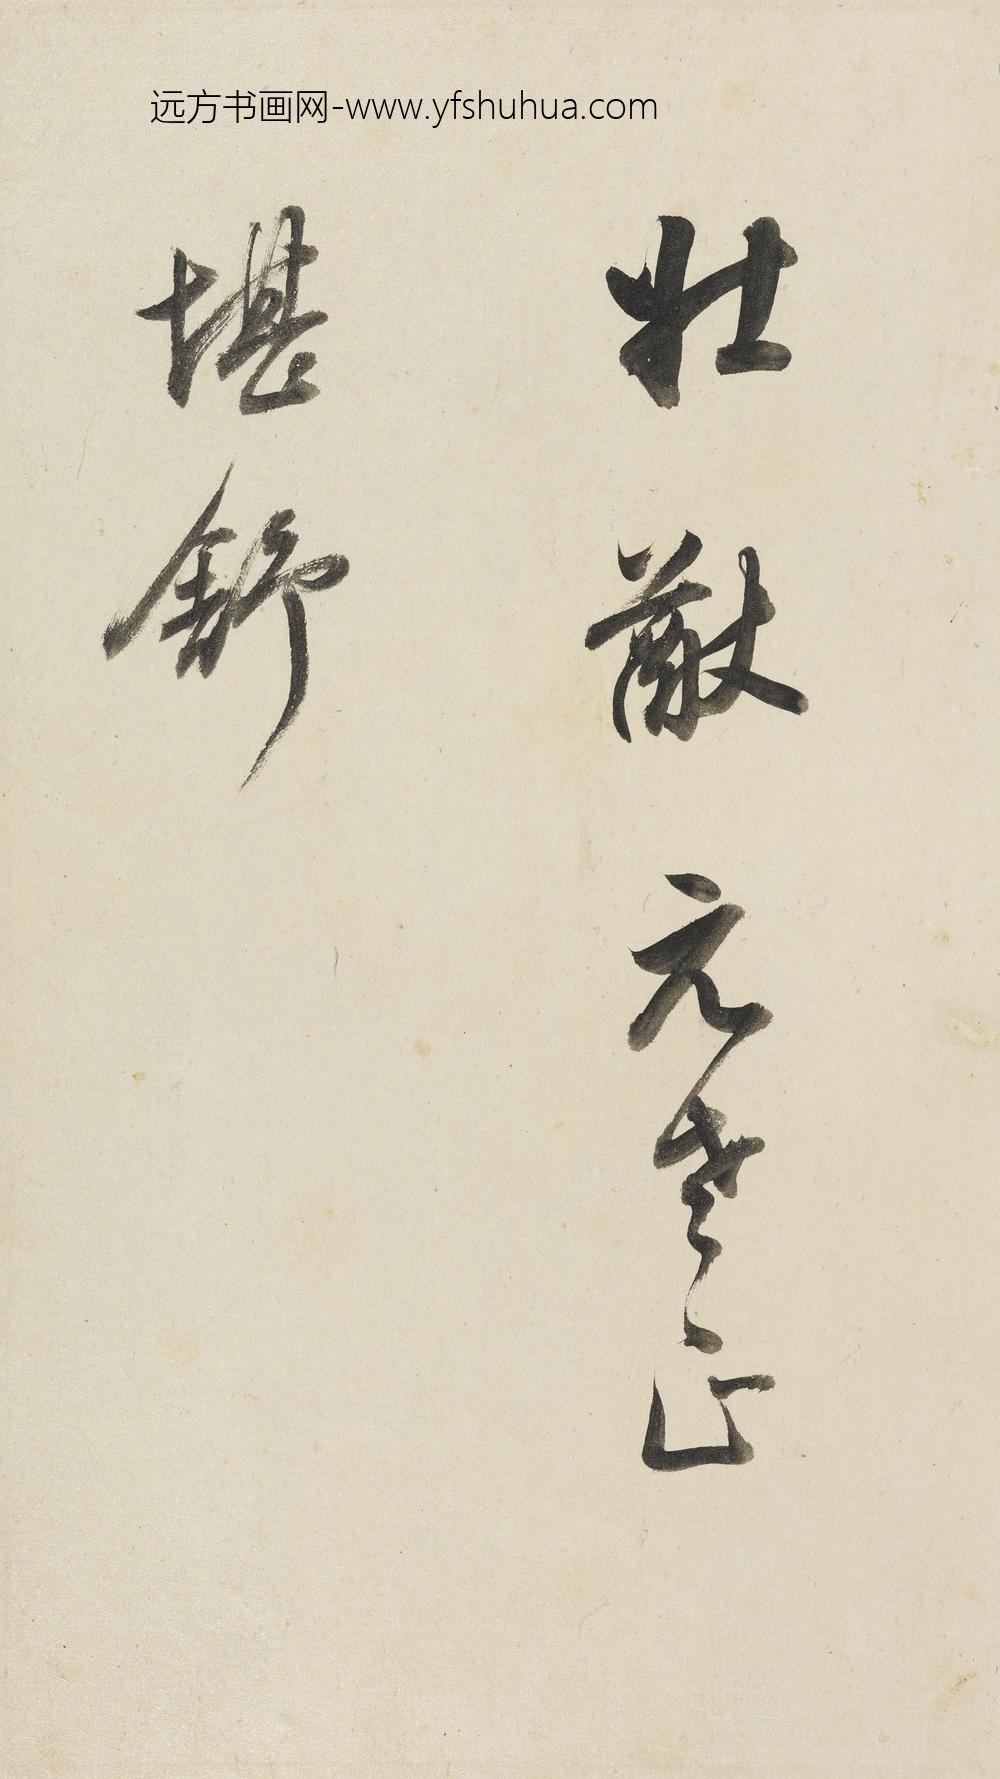 远方书画网-www.yfshuhua.com
壮猷元老正
堪舒